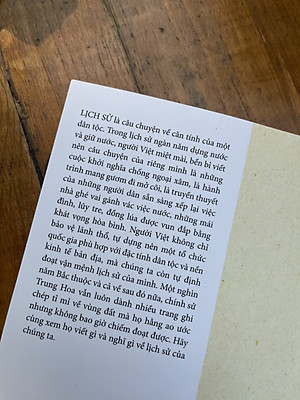 LỊCH SỬ là câu chuyện về căn tính của một
dân tộc. Trong lịch sử ngàn năm dựng nước
và giữ nước, người Việt miệt mài, bền bỉ viết
nên câu chuyện của riêng mình là những
cuộc khởi nghĩa chống ngoại xâm, là hành
trình mang gươm đi mở cõi, là truyền thuyết
của những người dân sẵn sàng xếp lại việc
nhà ghé vai gánh vác việc nước, những mái
đình, lũy tre, đồng lúa được vun đắp bằng
khát vọng hòa bình. Người Việt không chỉ
bảo vệ lãnh thổ, tự dựng nên một tổ chức
quốc gia phù hợp với đặc tính dân tộc và nền
kinh tế bản địa, mà chúng ta còn tự định
đoạt vận mệnh lịch sử của mình. Một nghìn
năm Bắc thuộc và cả về sau đó nữa, chính sử
Trung Hoa vẫn luôn dành nhiều trang ghi
chép tỉ mỉ về vùng đất mà họ hằng ao ước
nhưng không bao giờ chiếm đoạt được. Hãy
cùng xem họ viết gì và nghĩ gì về lịch sử của
chúng ta.